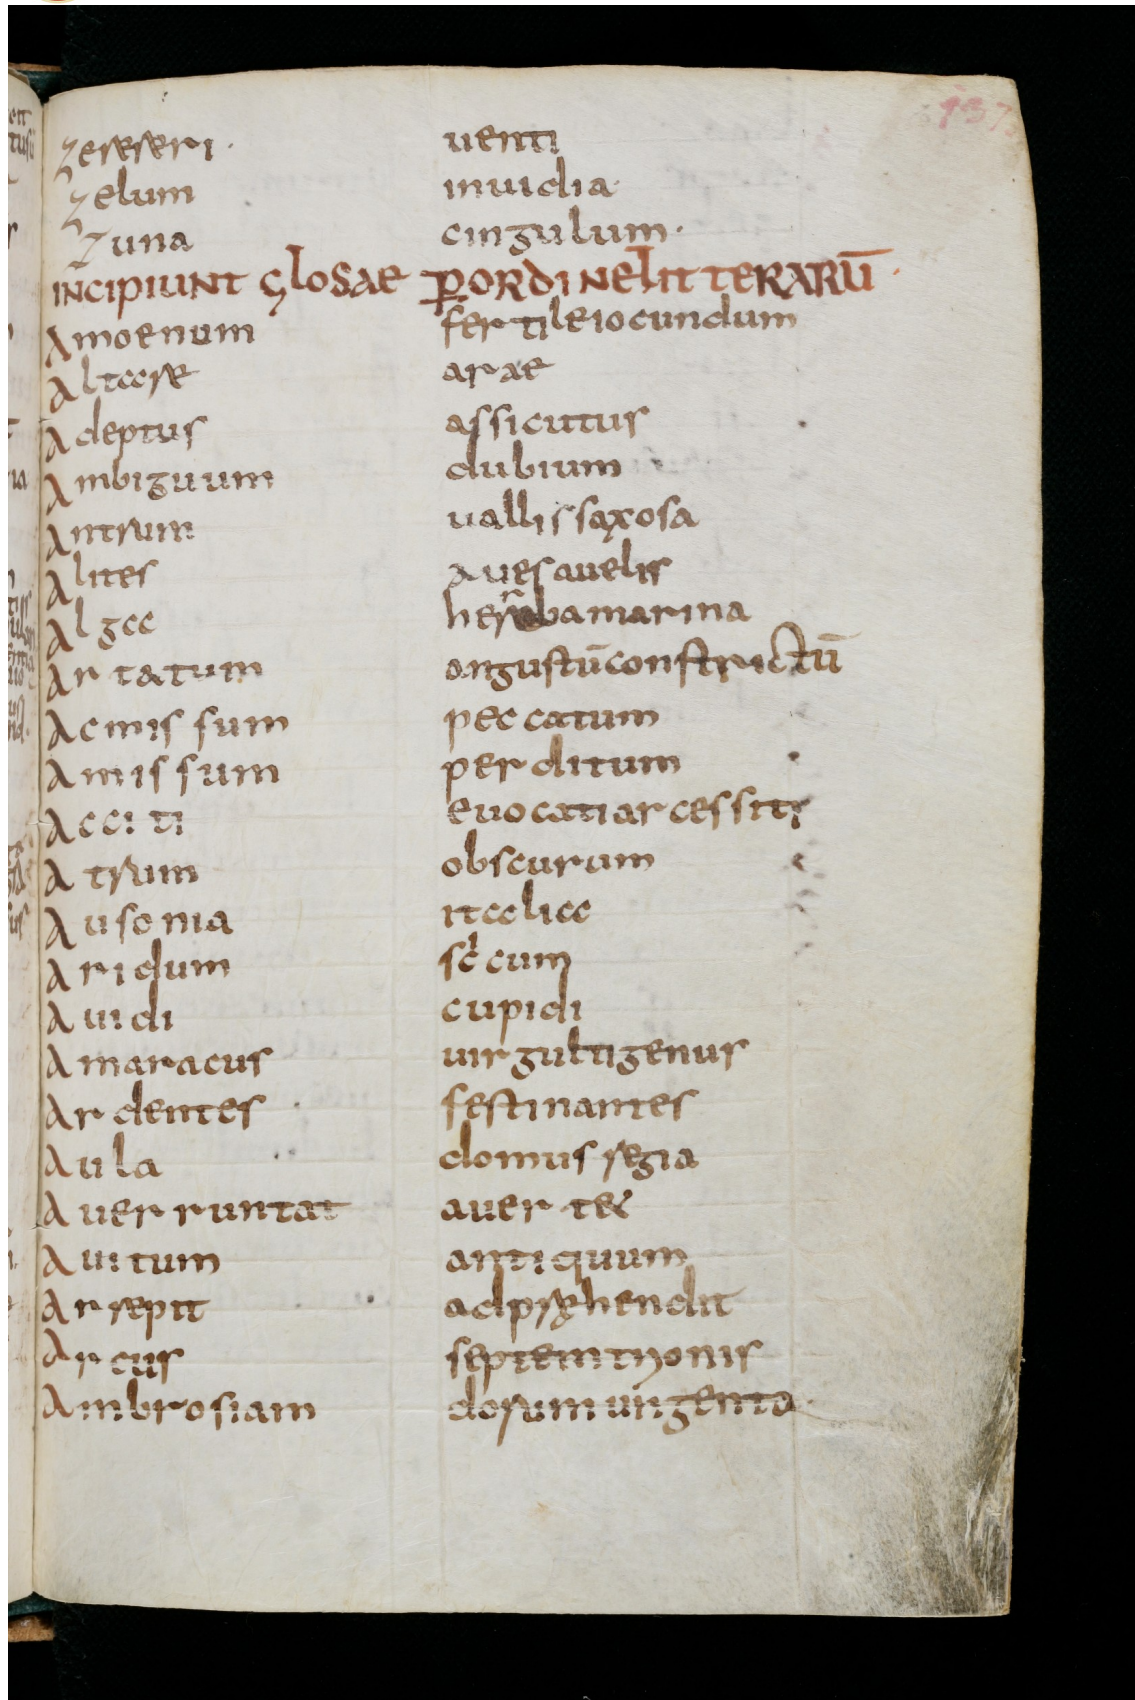 zeseferi · uenti
zelum inuidia ·
zuna cingulum ·
INCIPIUNT GLOSAE PORDINE LITTERARŪ ·
Amoenum fertile iocundum
Altare arae
Adeptus assicutus
Ambiguum dubium
Antrum uallis saxosa
Alites aues auelis
Alga herba marina
Artatum angustū constrictū
Acmissum peccatum
Amissum perditum
Acciti euocati arcessiti
Atrum obscurum
Ausonia italica
Aridum siccum
Auidi cupidi
Amaracus uirgulti genus
Ardentes festinantes
Aula domus regia
Auerruntat auertet
Auitum antiquum
Arrepit adprehendit
Arcus septemtrionis
Ambrosiam deorum ungenta ·